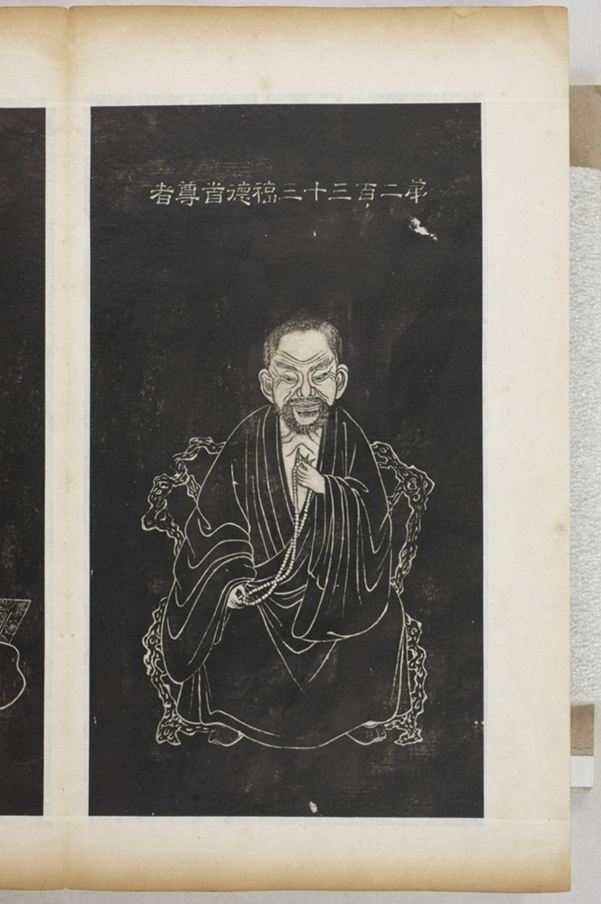 苐二百三十三福德首尊者